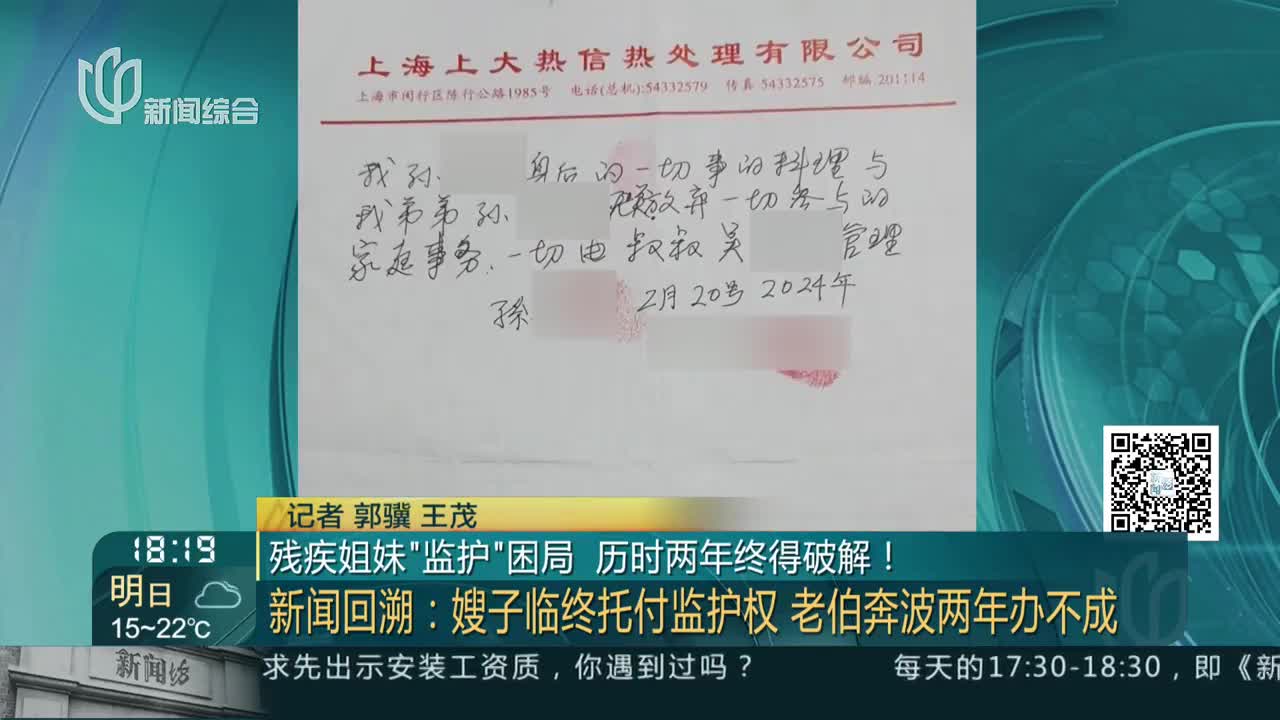 新闻综合
上海上大热信热处理有限公司
上海市闵行区陈行公路1985号 电话(总机):54332579 传真 54332575 邮编 201114
我孙 身后的一切事的料理与
我弟弟孙 放弃一切参与的
家庭事务、一切由叔叔吴 管理
孙 2月20号2024年
记者 郭骥 王茂
残疾姐妹"监护"困局 历时两年终得破解！
新闻回溯：嫂子临终托付监护权 老伯奔波两年办不成
18:19
明日
15~22℃
新闻坊
求先出示安装工资质，你遇到过吗？ 每天的17:30-18:30，即《新